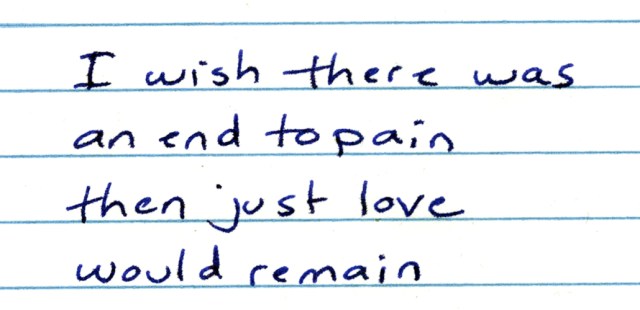 I wish there was
an end to pain
then just love
would remain